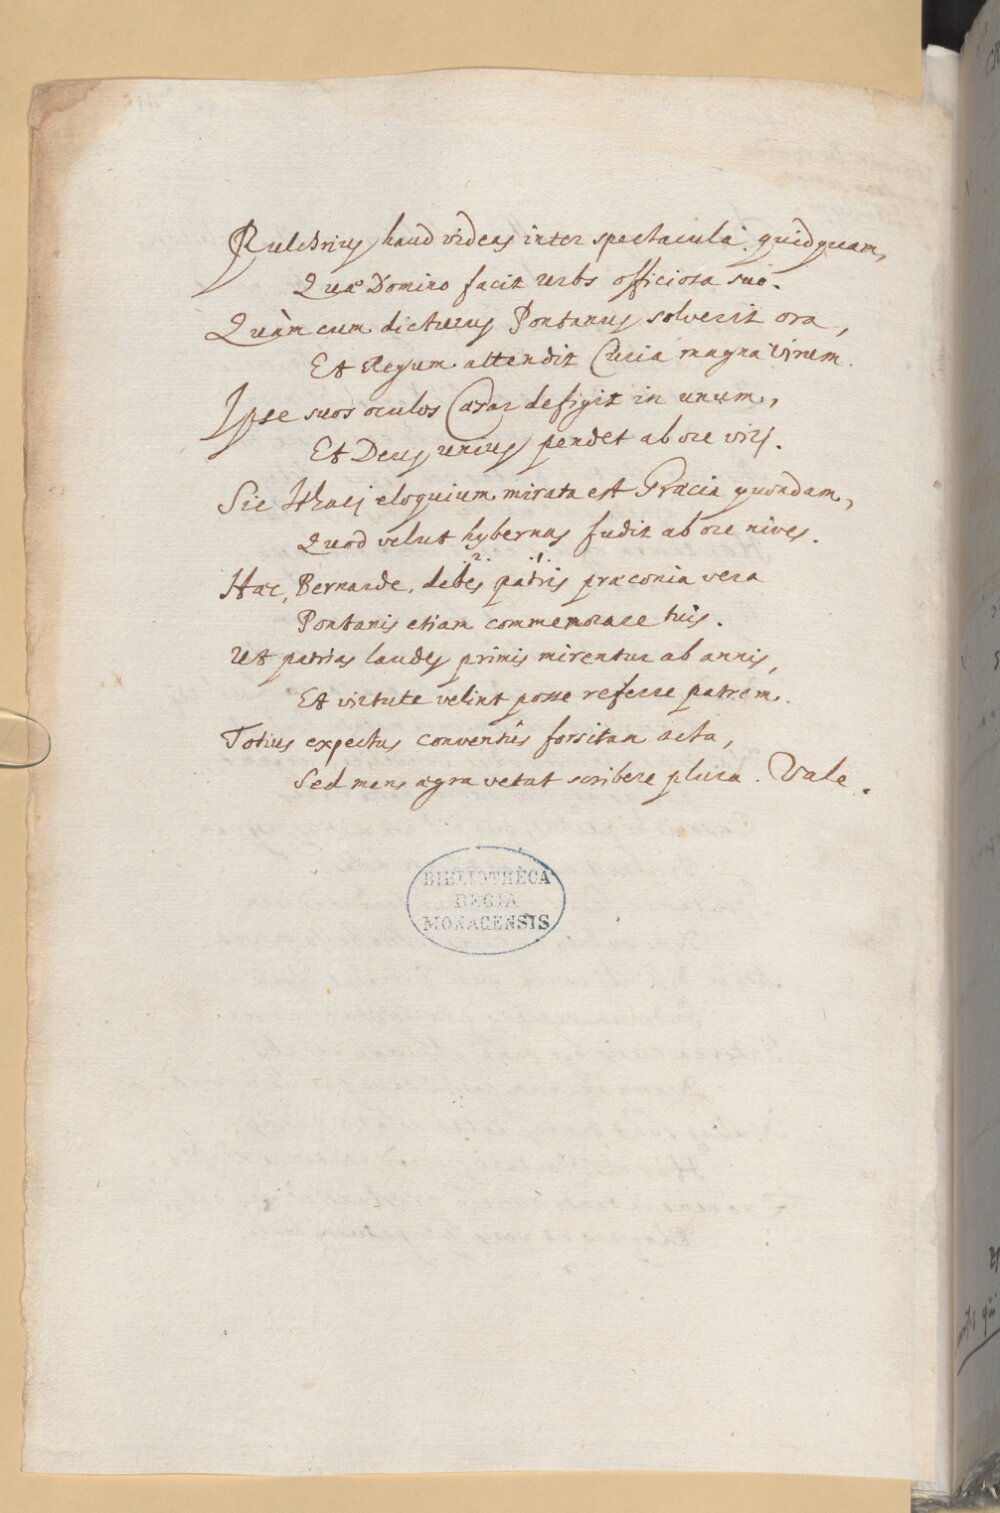 Pulchrius haud videas inter spectacula quidquam,
Quae Domino facit urbs officiosa suo.
Quàm cum dicturus Pontanus solverit ora,
Et Regum attendit Curia magna virum.
Ipse suos oculos Caesar defigit in unum,
Et Deus unius pendet ab ore viri.
Sic Ithaci eloquium mirata est Graecia quondam,
Quod velut hybernas fudit ab ore nives.
.2. .1.
Haec, Bernarde, debes patris praeconia vera
Pontanis etiam commemorare tuis.
Ut patrias laudes primis mirentur ab annis,
Et virtute velint posse referre patrem.
Totius expectas conventûs forsitan acta,
Sed mens aegra vetat scribere plura. Vale.
BIBLIOTHECA
REGIA
MONACENSIS